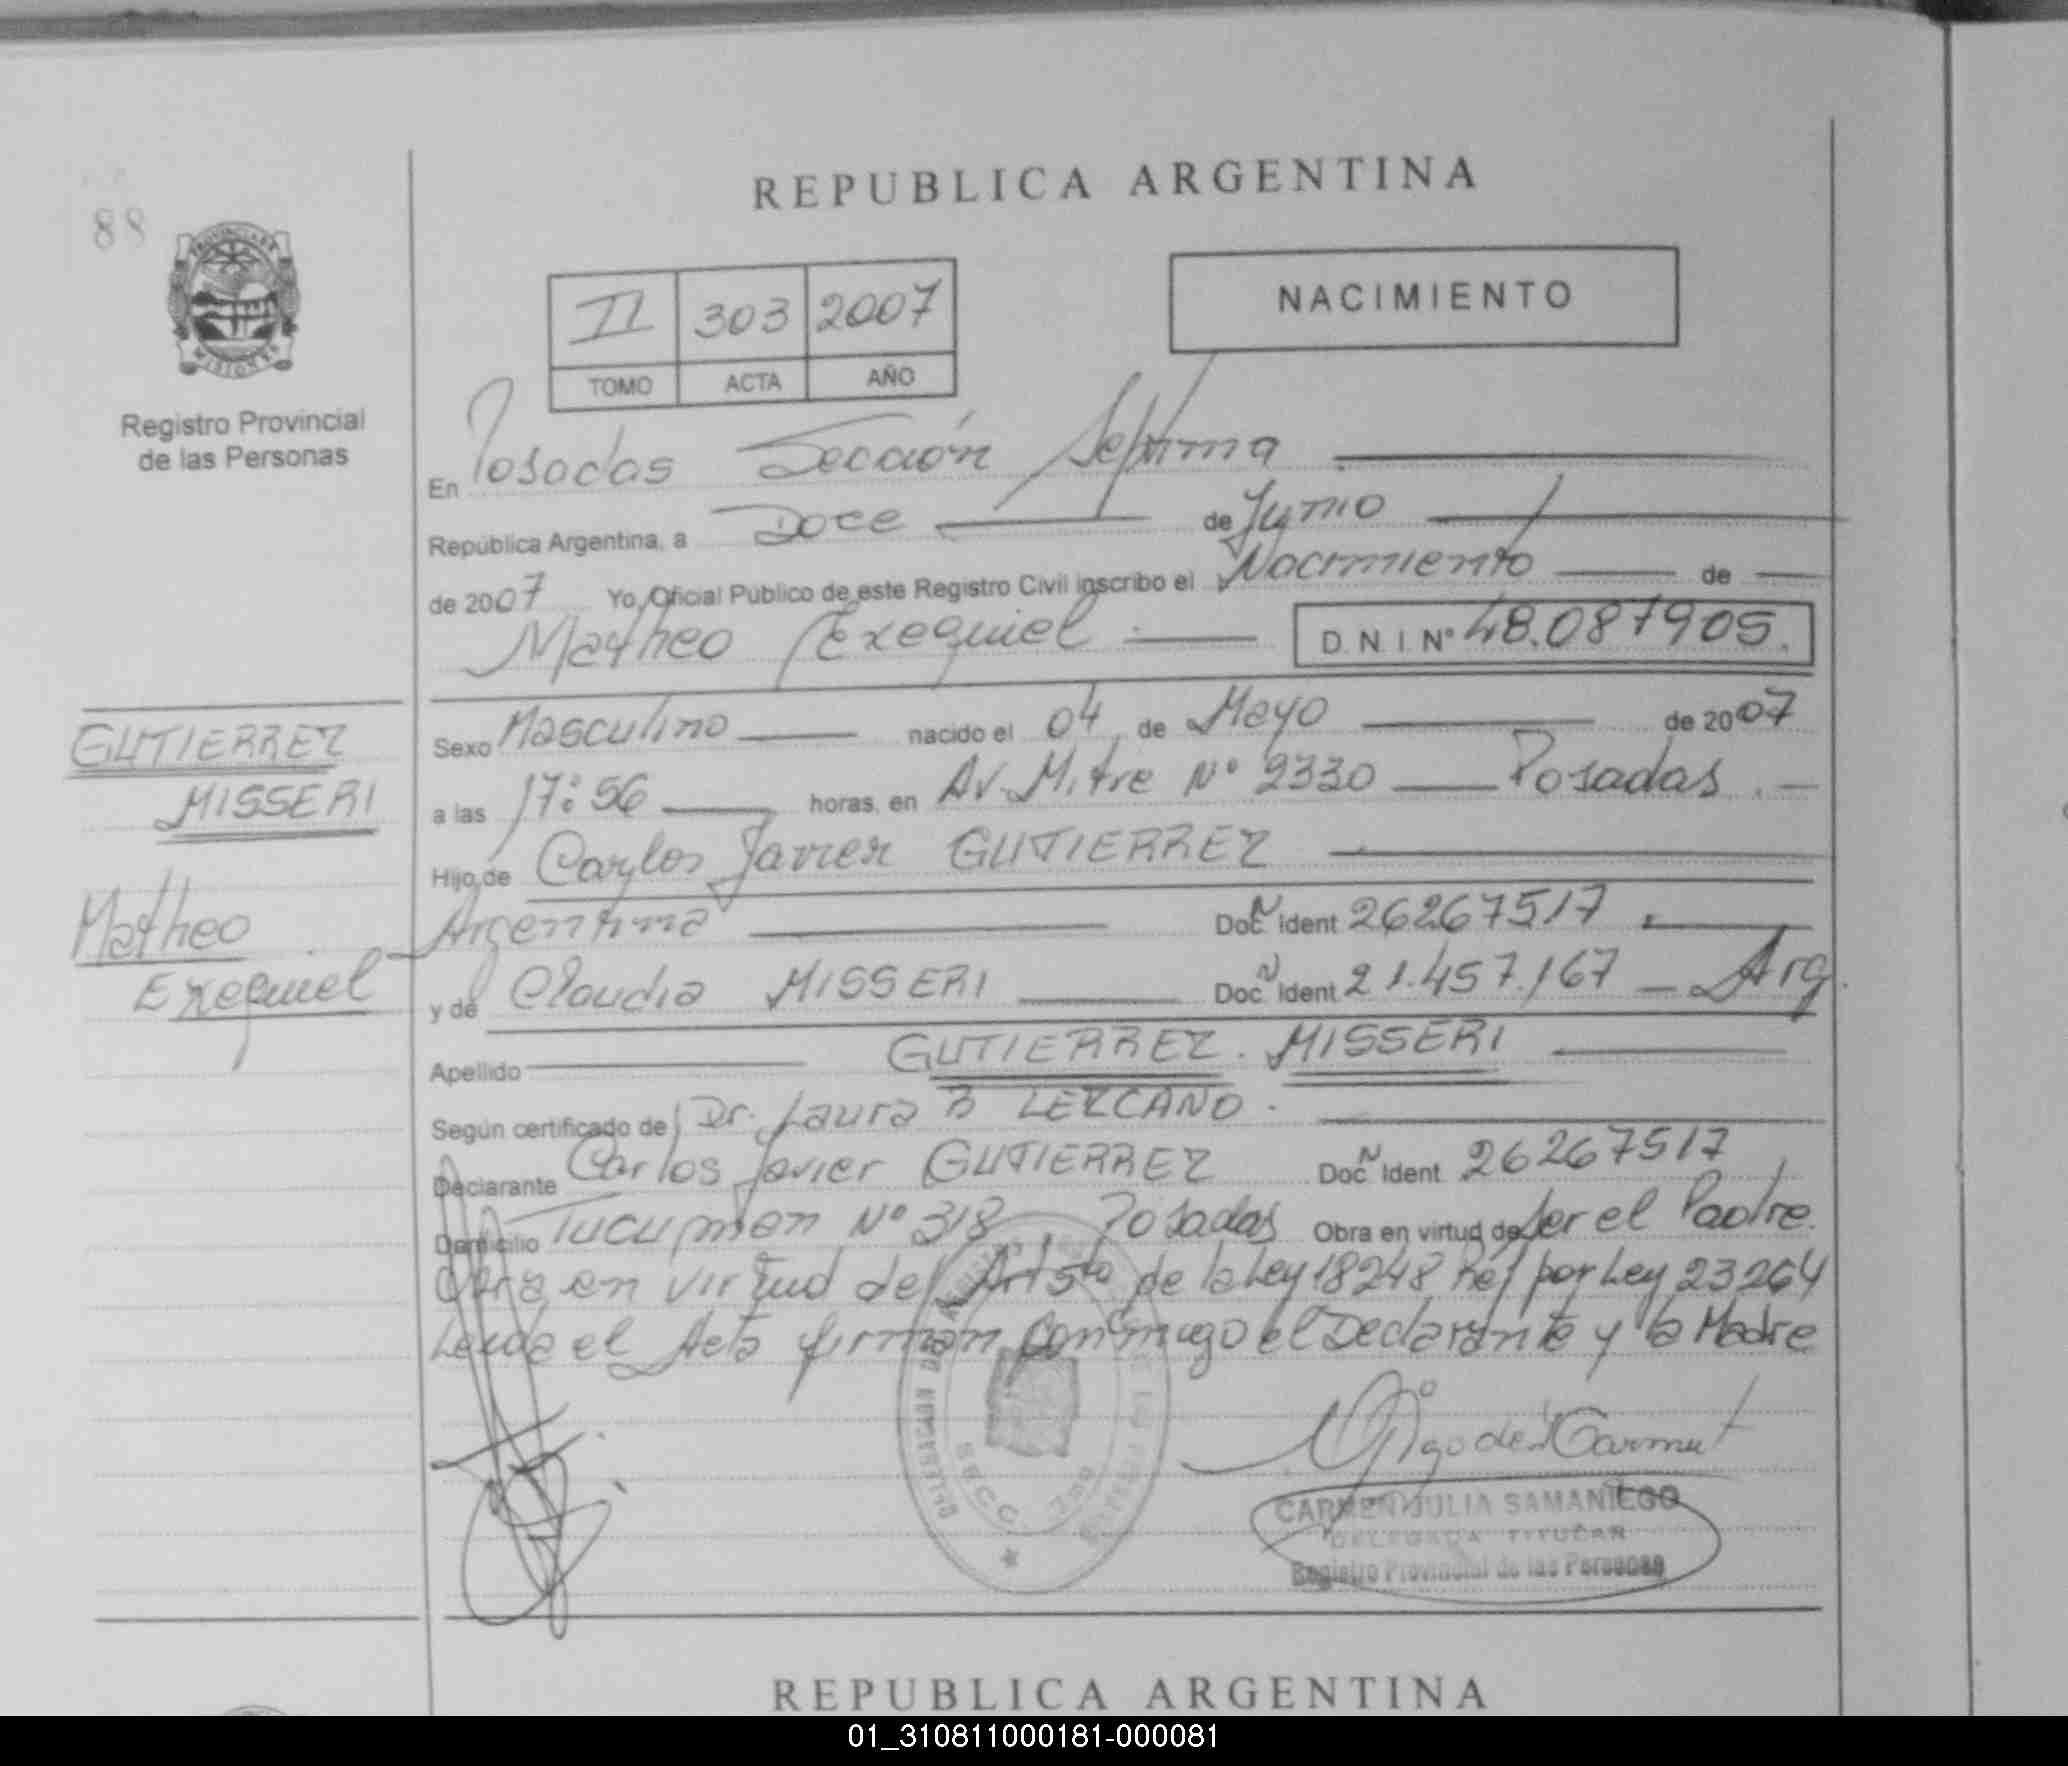 REPUBLICA ARGENTINA
88
PROVINCIA DE
MISIONES
Registro Provincial
de las Personas
II 303 2007
TOMO ACTA AÑO
NACIMIENTO
En Posadas Sección Séptima
República Argentina, a Doce de Junio
de 2007 Yo, Oficial Público de este Registro Civil inscribo el Nacimiento de
Matheo Exequiel D.N.I.Nº 48.087905.
GUTIERREZ
MISSERI
Matheo
Exequiel
Sexo Masculino nacido el 04 de Mayo de 2007
a las 17:56 horas, en Av. Mitre Nº 2330 Posadas.
Hijo de Carlos Javier GUTIERREZ
Argentina Doc Ident 26267517
y de Claudia MISSERI Doc Ident 21.457.167 Arg.
Apellido GUTIERREZ. MISSERI
Según certificado de Dr. Laura B LEZCANO.
Declarante Carlos Javier GUTIERREZ Doc Ident 26267517
Domicilio Tucuman Nº 318, Posadas Obra en virtud de Ser el Padre.
Obra en virtud del Art 5to de la Ley 18248 Ref por Ley 23264
Leida el Acta firman conmigo el Declarante y la Madre
CARMEN JULIA SAMANIEGO
DELEGADA TITULAR
Registro Provincial de las Personas
REPUBLICA ARGENTINA
01_310811000181-000081